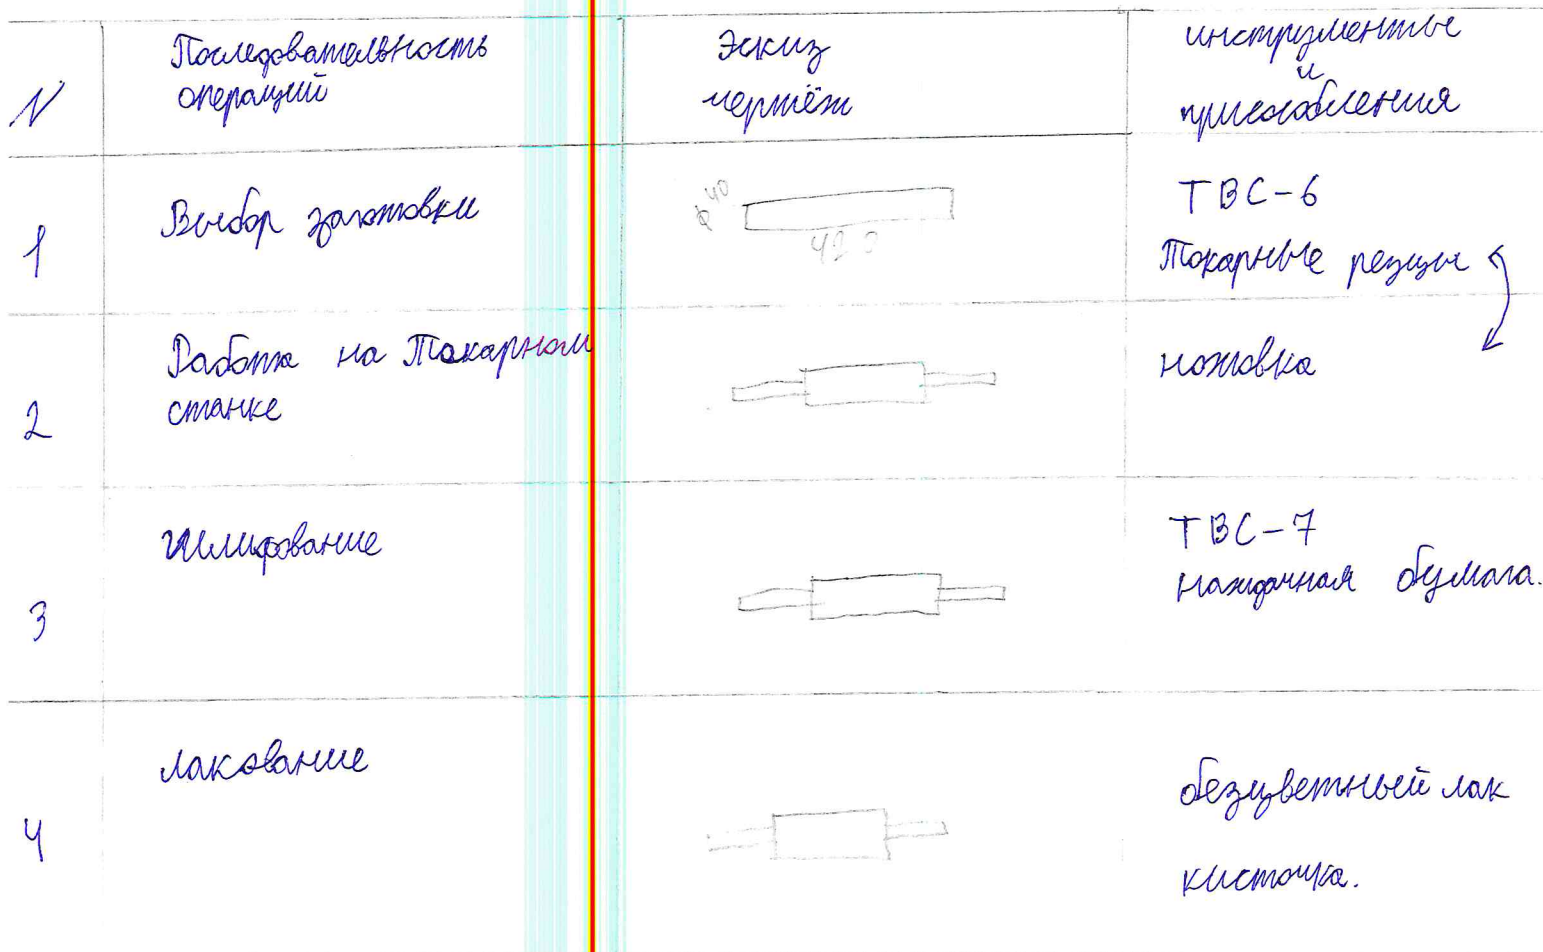 N
Последовательность
операций
Эскиз
чертёж
инструменты
и
присособления
1
Выбор заготовки
⌀40
420
ТВС-6
Токарные резцы
2
Работа на Токарном
станке
ножовка
3
Шлифование
ТВС-7
Наждачная бумага.
4
лакование
безцветный лак
кисточка.